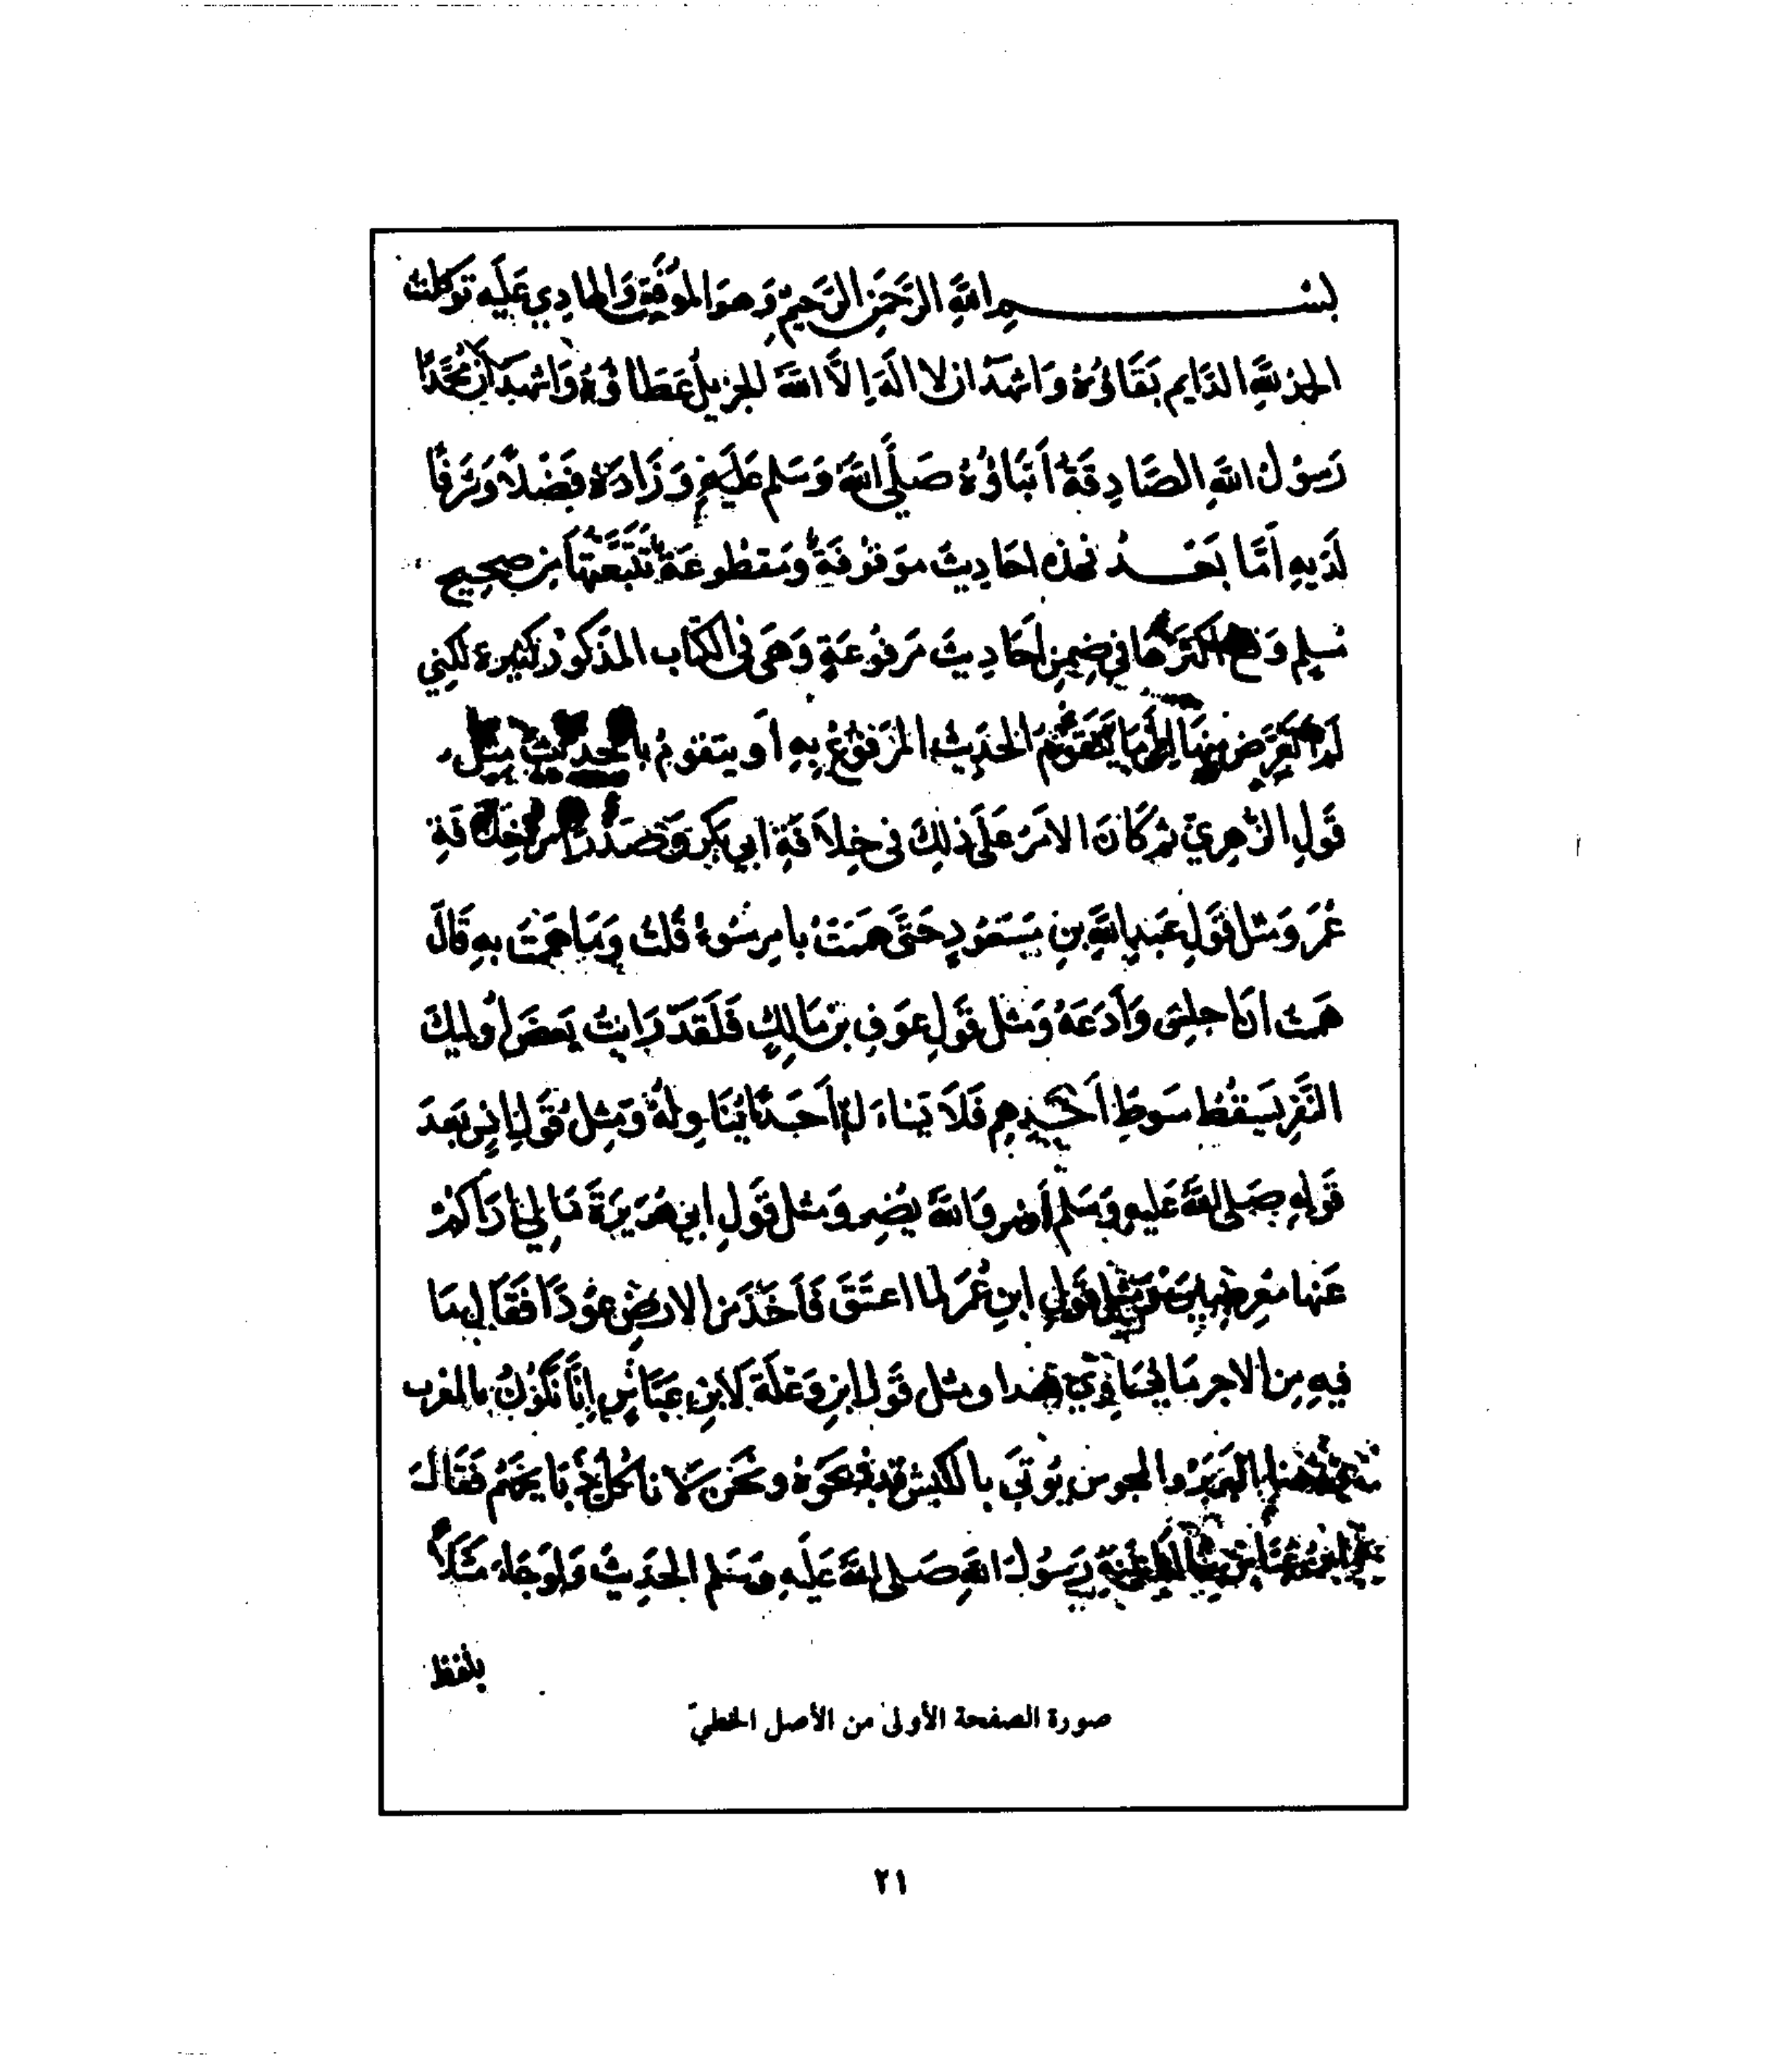 بسم الله الرحمن الرحيم وهو الموفق والهادي عليه توكلت
الحمد لله الدايم بقاؤه واشهد ان لا اله الا الله الجزيل عطاؤه واشهد أن محمدا
رسول الله الصادقة أنباؤه صلى الله وسلم عليه وزاده فضلا وشرفا
لديه أما بعد فهذه احاديث موقوفة ومقطوعة تتبعتها من صحيح
مسلم وقع أكثرها في ضمن أحاديث مرفوعة وهي في الكتاب المذكور كثيرة لكني
لم اتعرض منها لما يتقوم الحديث المرفوع به أو يتقوم بالحديث مثل
قول الزهري ثم كان الامر على ذلك في خلافة ابي بكر وصدرا من خلافة
عمر ومثل قول عبد الله بن مسعود حتى هممت بامر سوء قلت وما هممت به قال
هممت ان اجلس وأدعه ومثل قول عوف بن مالك فلقد رايت بعض أوليك
النفر يسقط سوط أحدهم فلا يسأل أحدا يناوله ومثل قول انس بعد
قوله صلى الله عليه وسلم
ومثل قول ابي هريرة مالي اراكم
عنها معرضين ومثل قول ابن عمر لما اعتق فأخذ من الارض عودا فقال ما
فيه من الاجر ما يساوي هذا ومثل قول ابن وعلة لابن عباس إنا نكون بالمغرب
معنا البربر والمجوس يوتى بالكبش قد ذبحوه ونحن لا ناكل ذبايحهم فقال
ابن عباس سألنا رسول الله صلى الله عليه وسلم الحديث ولو جاء مثلا
بلفظ
صورة الصفحة الأولى من الأصل الخطيّ
٢١